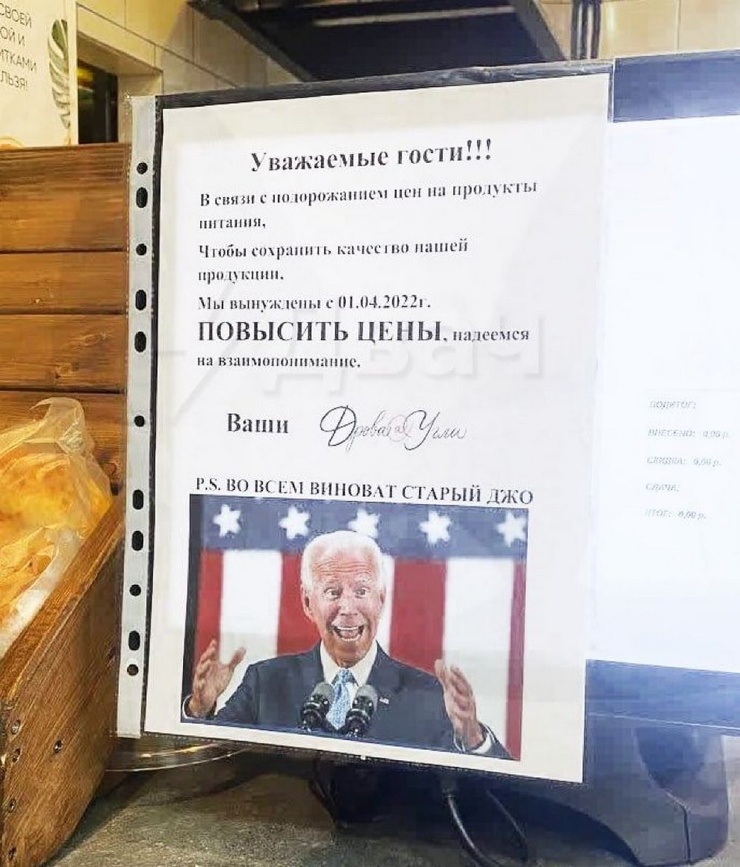 СВОЕЙ
ОЙ И
ИТКАМИ
ЛЬЗЯ!
Уважаемые гости!!!
В связи с подорожанием цен на продукты
питания,
Чтобы сохранить качество нашей
продукции,
Мы вынуждены с 01.04.2022г.
ПОВЫСИТЬ ЦЕНЫ, надеемся
на взаимопонимание.
Двач
Ваши Дрова и Угли
P.S. ВО ВСЕМ ВИНОВАТ СТАРЫЙ ДЖО
ПОДИТОГ:
ВНЕСЕНО: 0,00 р.
СКИДКА: 0,00 р.
СДАЧА:
ИТОГ: 0,00 р.